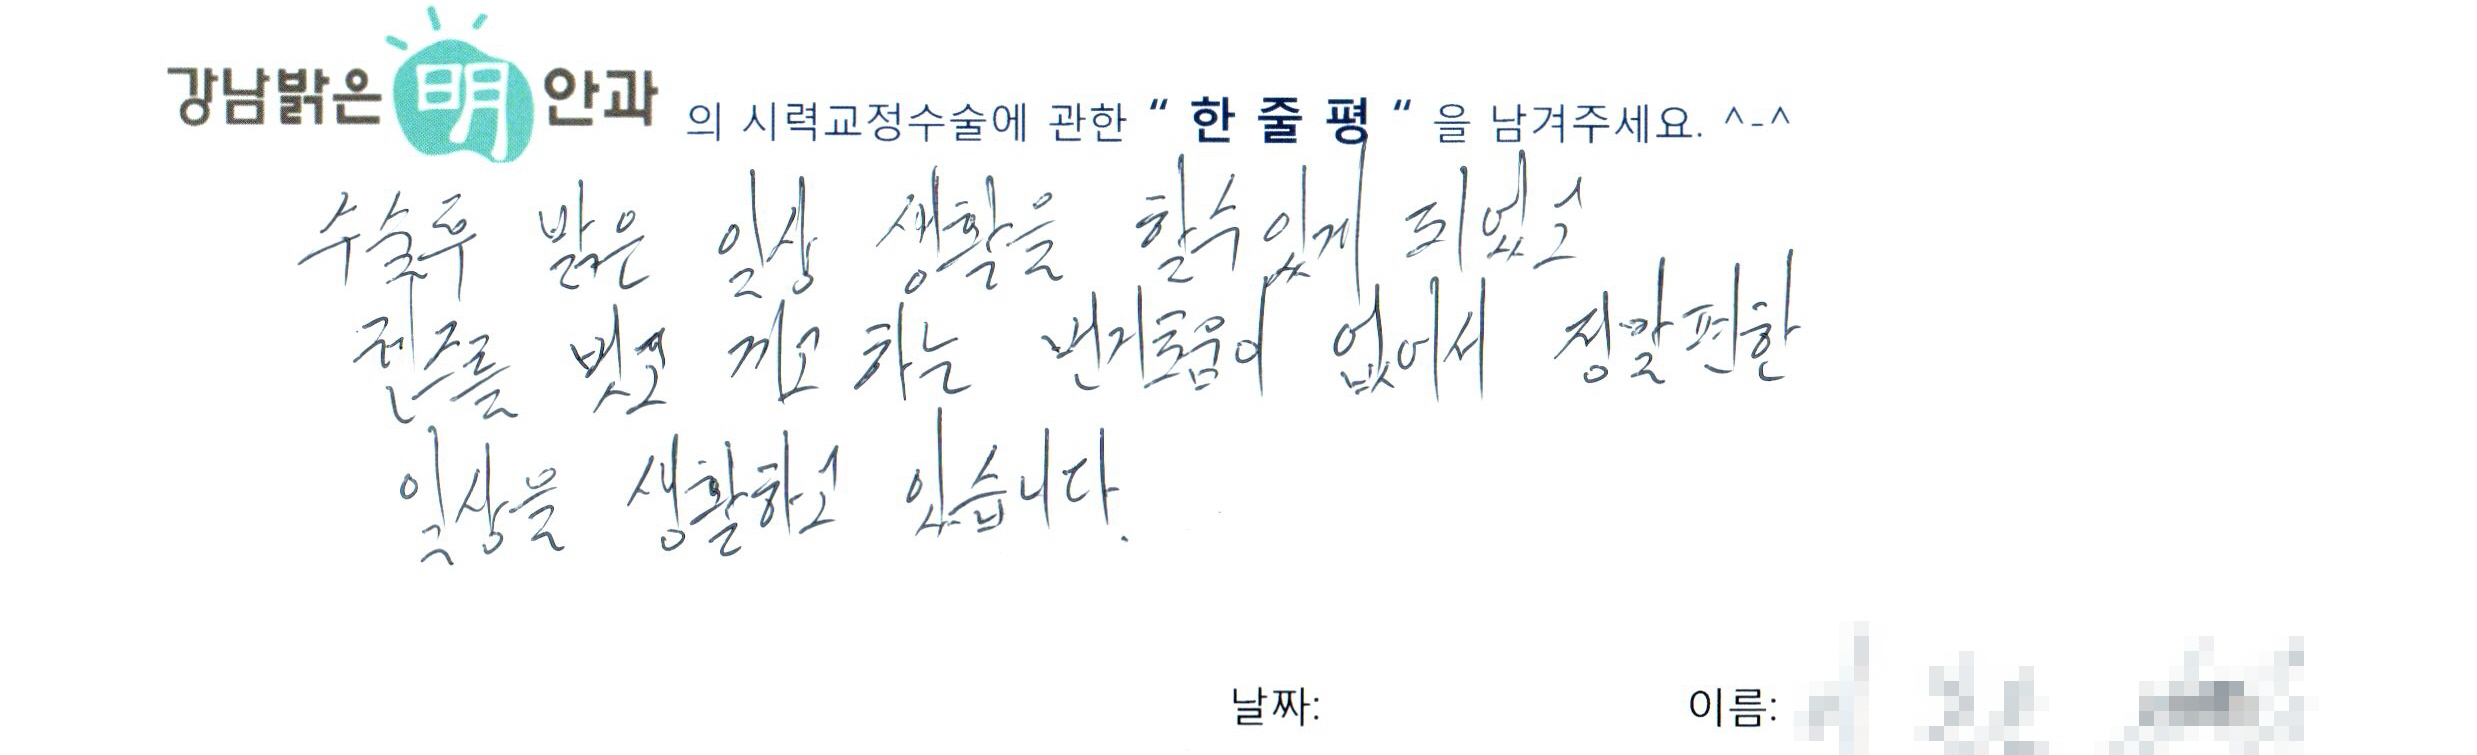 강남밝은 明 안과 의 시력교정수술에 관한 “ 한 줄 평 “ 을 남겨주세요. ^-^
수술후 밝은 일상 생활을 할수있게 되었고
렌즈를 벗고 끼고 하는 번거로움이 없어서 정말편한
일상을 생활하고 있습니다.
날짜: 이름: